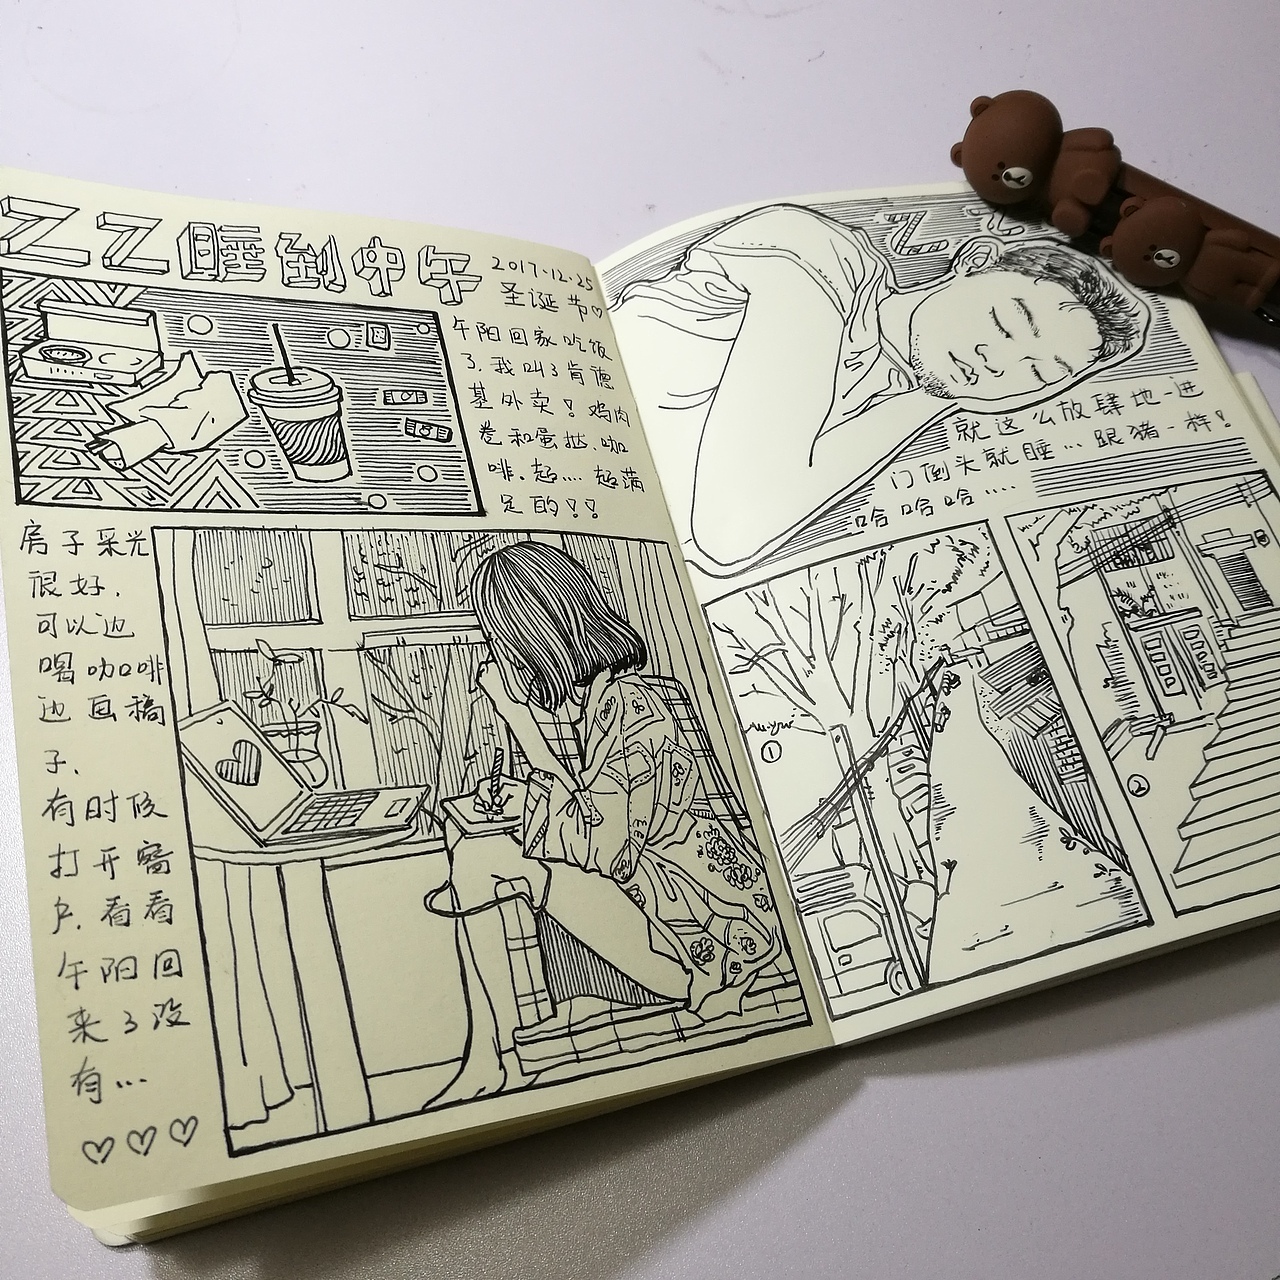 ZZ睡到中午
2017-12-25
圣诞节♡
午阳回家吃饭
了.我叫了肯德
基外卖!鸡肉
卷和蛋挞.咖
啡.超....超满
足的!!
房子采光
很好.
可以边
喝咖啡
边画稿
子.
有时候
打开窗
户.看看
午阳回
来了没
有...
♡♡♡
ZZ
就这么放肆地一进
门倒头就睡...跟猪一样!
哈哈哈....
①
②